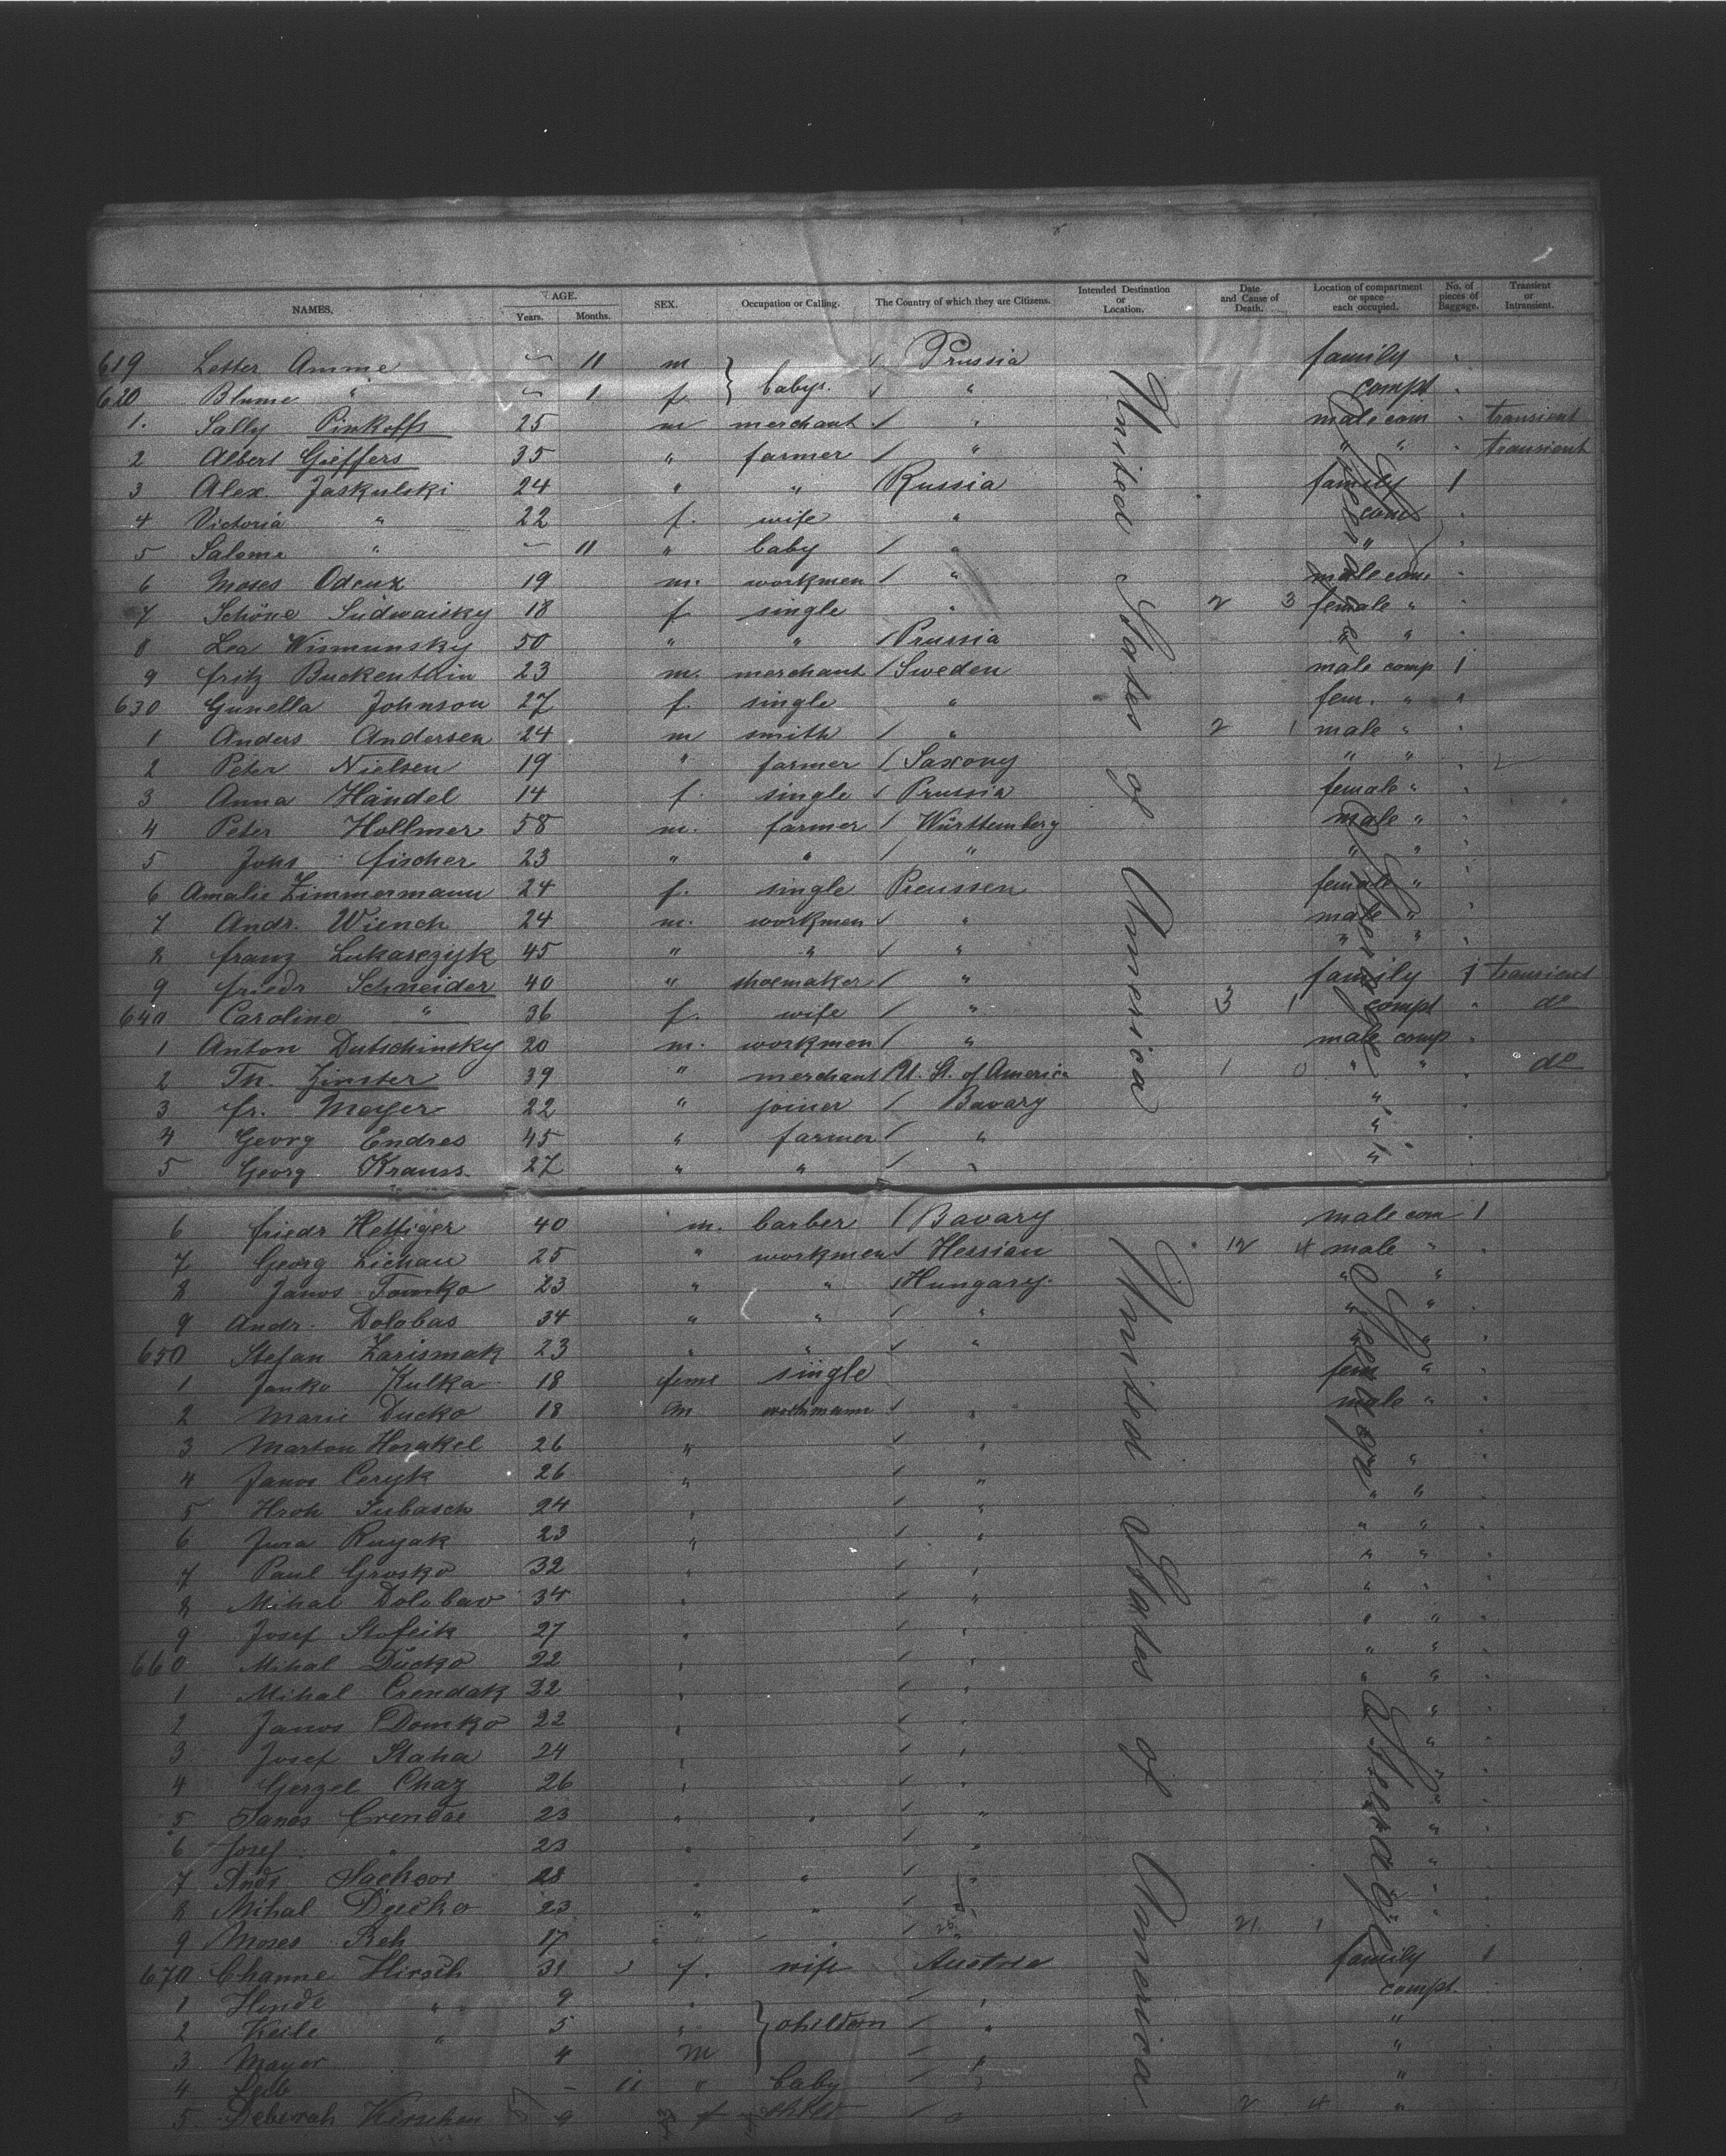 NAMES. AGE. Years. Months. SEX. Occupation or Calling. The Country of which they are Citizens. Intended Destination or Location. Date and Cause of Death. Location of compartment or space each occupied. No. of pieces of Baggage. Transient or Intransient.
619 Letter Amme 11 m Prussia family
620 Blume " 1 f babys. " compt
1. Sally Pinkoffs 25 m merchant " male com transient
2 Albert Gieffers 35 " farmer " " " transient
3 Alex. Jaskulski 24 " " Russia family 1
4 Victoria " 22 f. wife " com
5 Salome " 11 " baby " "
6 Moses 19 m. workmen " male com
7 Schöne Sudwaisky 18 f single " 2 3 female "
8 Lea Wismunsky 50 " " Prussia " "
9 fritz Buckenthin 23 m. merchant Sweden male comp 1
630 Gunella Johnson 27 f. single " fem. "
1 Anders Andersen 24 m smith " 2 1 male "
2 Peter Nielsen 19 " farmer Saxony " "
3 Anna Händel 14 f. single Prussia female "
4 Peter Hollmer 58 m. farmer Württemberg male "
5 Johs fischer 23 " " " " "
6 Amalie Zimmermann 24 f. single Preussen female "
7 Andr. Wiench 24 m. workmen " male "
8 franz Lukasczyk 45 " " " " "
9 friedr Schneider 40 " shoemaker " family 1 transient
640 Caroline " 36 f. wife " 3 1 compt do
1 Anton Dutschinsky 20 m. workmen " male comp
2 Th. Zinster 39 " merchant U. St. of America 1 0 " " do
3 fr. Mayer 22 " joiner Bavary "
4 Georg Endres 45 " farmer " "
5 Georg Krauss 27 " " " "
United States of America
Steerage
Steerage
6 friedr Hettiger 40 m. barber Bavary male com 1
7 Georg Lichau 25 " workmen Hessian 12 4 male "
8 Janos Tomko 23 " " Hungary. " "
9 Andr. Dolobas 34 " " " " "
650 Stefan Zarismak 23 " " " " "
1 Janko Kulka 18 feme single fem "
2 Marie Ducko 18 m workmann " male "
3 Marton Horakel 26 " "
4 Janos Ceryk 26 " " "
5 Hroh 24 " " " "
6 Jura Ruyak 23 " " " "
7 Paul Grosko 32 " " " "
8 Mihal Dolobav 34 " " " "
9 Josef Stofcik 27 " " " "
660 Mihal Ducko 22 " " " "
1 Mihal Crendak 22 " " " "
2 Janos Domko 22 " " "
3 Josef Staha 24 " " "
4 Gerzel Chaz 26 " " "
5 Janos Crendae 23 " " " "
6 Josef " 23 " " "
7 Andr 28 " " " "
8 Mihal Ducko 23 " " "
9 Moses Reh 17 " " " 21 1
670 Channe Hirsch 31 f. wife Austria family 1
1 Hinde " 9 " " compt.
2 Keile " 5 " children " "
3 Mayer 4 m " "
4 Leib - 11 " baby " "
5 Deborah Kirschen 9 f child " 2 4 "
United States of America
Steerage
Steerage